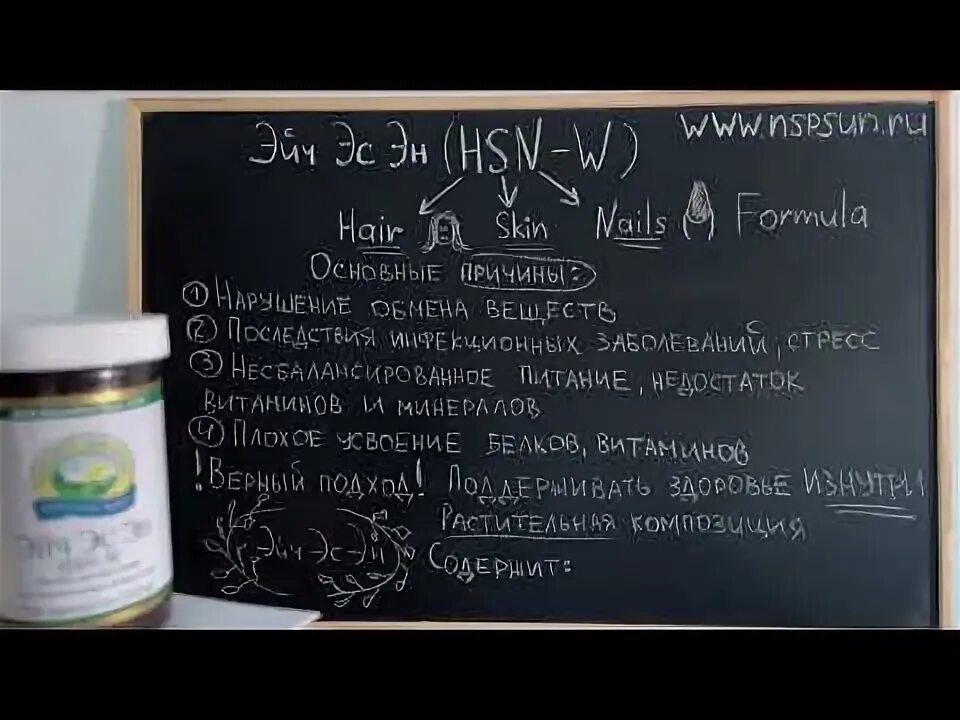 www.nspsun.ru
Эйч Эс Эн (HSN-W)
Hair Skin Nails Formula
Основные причины:
1 Нарушение обмена веществ
2 Последствия инфекционных заболеваний, стресс
3 Несбалансированное питание, недостаток
витаминов и минералов
4 Плохое усвоение белков, витаминов
! Верный подход! Поддерживать здоровье изнутри
Растительная композиция
Эйч-Эс-Эн Содержит:
Эйч Эс Эн